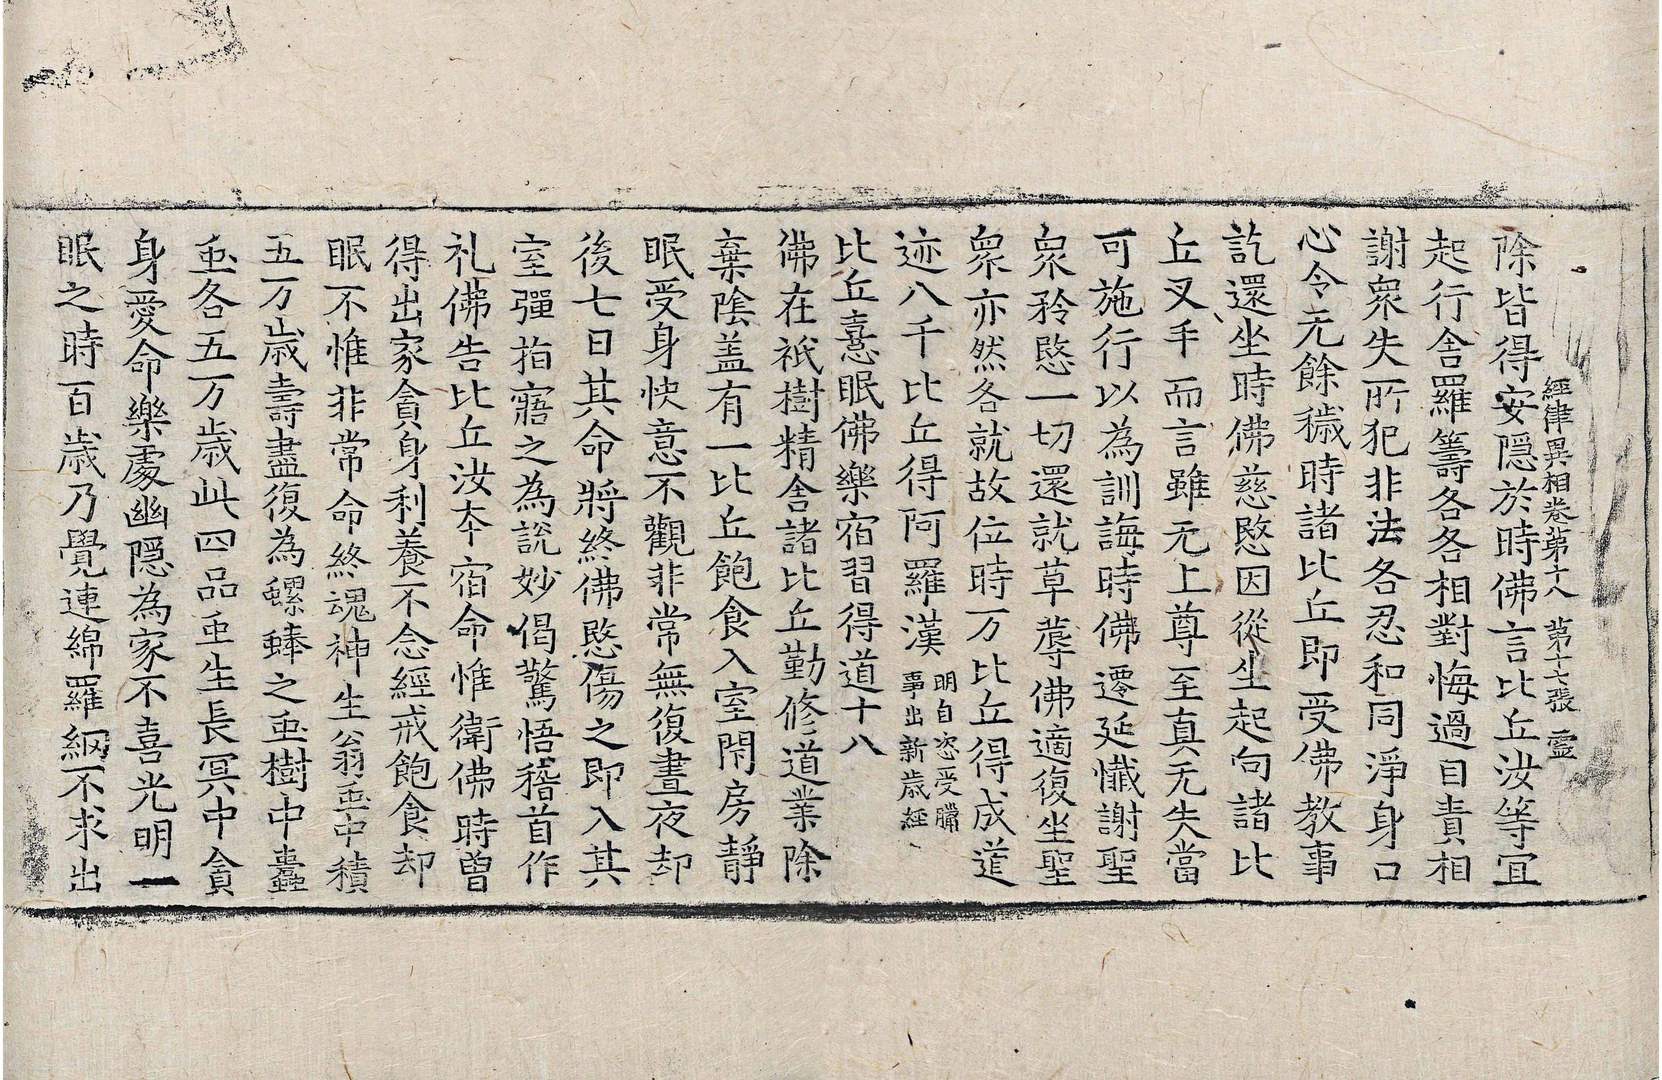 經律異相卷第十八　第十七張　靈
除皆得安隱於時佛言比丘汝等宜
起行舍羅籌各各相對悔過自責相
謝衆失所犯非法各忍和同淨身口
心令无餘穢時諸比丘即受佛教事
訖還坐時佛慈愍因從坐起向諸比
丘叉手而言雖无上尊至真无失當
可施行以為訓誨時佛遷延懺謝聖
衆矜愍一切還就草蓐佛適復坐聖
衆亦然各就故位時万比丘得成道
迹八千比丘得阿羅漢 明自恣受臈 事出新歲經
比丘憙眠佛樂宿習得道十八
佛在祇樹精舍諸比丘勤修道業除
棄陰盖有一比丘飽食入室閇房靜
眠受身快意不觀非常無復晝夜却
後七日其命將終佛愍傷之即入其
室彈指寤之為說妙偈驚悟稽首作
礼佛告比丘汝本宿命惟衛佛時曾
得出家貪身利養不念經戒飽食却
眠不惟非常命終魂神生翁䖝中積
五万歲壽盡復為螺蜯之䖝樹中蠹
䖝各五万歲此四品䖝生長冥中貪
身愛命樂處幽隱為家不喜光明一
眠之時百歲乃覺連綿羅網不求出